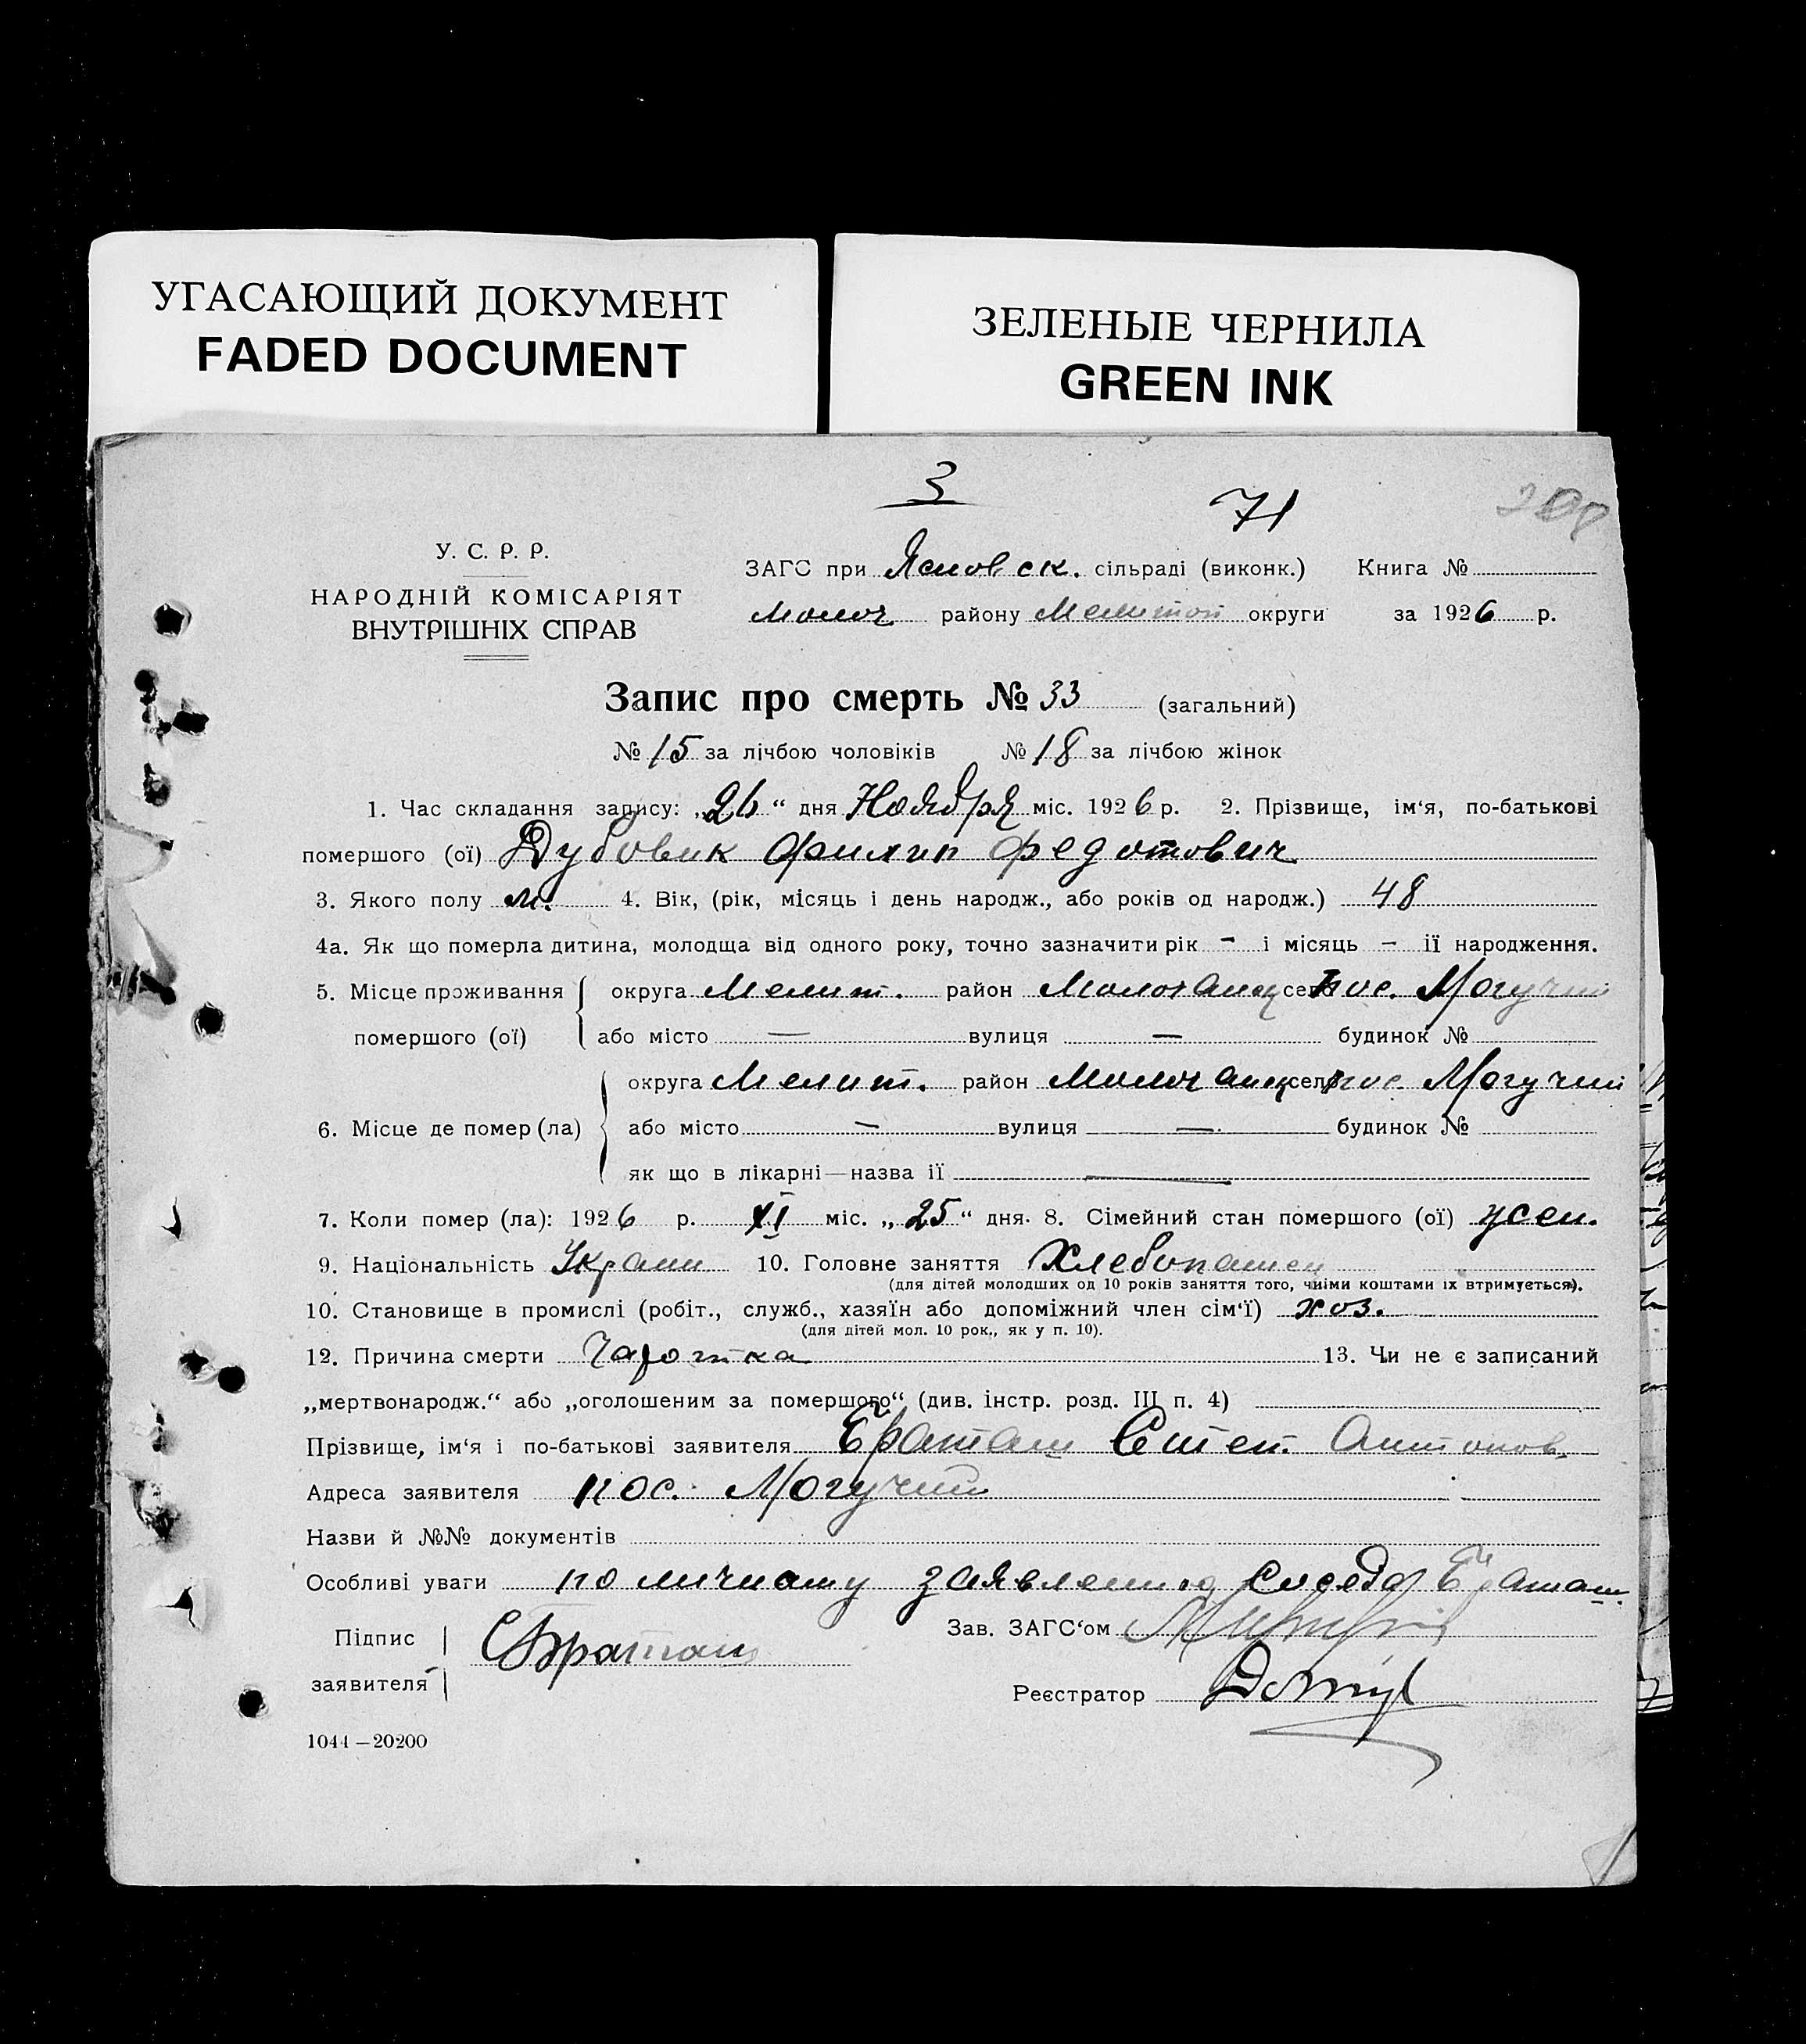 УГАСАЮЩИЙ ДОКУМЕНТ
FADED DOCUMENT
ЗЕЛЕНЫЕ ЧЕРНИЛА
GREEN INK
3
71
У. С. Р. Р.
НАРОДНІЙ КОМІСАРІЯТ
ВНУТРІШНІХ СПРАВ
ЗАГС при Ясновск. сільраді (виконк.) Книга №
Молоч району Мелитоп округи за 1926 р.
Запис про смерть № 33 (загальний)
№ 15 за лічбою чоловіків № 18 за лічбою жінок
1. Час складання запису: „26“ дня Ноября міс. 1926 р. 2. Прізвище, ім‘я, по-батькові
помершого (ої) Дубовик Филип Федотович
3. Якого полу м. 4. Вік, (рік, місяць і день народж., або років од народж.) 48
4а. Як що померла дитина, молодща від одного року, точно зазначити рік – і місяць – її народження.
5. Місце проживання помершого (ої) округа Мелит. район Молочанск село пос. Могучий
або місто — вулиця — будинок №
6. Місце де помер (ла) округа Мелит. район Молочанск село пос. Могучий
або місто — вулиця — будинок №
як що в лікарні—назва її —
7. Коли помер (ла): 1926 р. XI міс. „25“ дня. 8. Сімейний стан помершого (ої) жен.
9. Національність Украин 10. Головне заняття Хлебопашец
(для дітей молодших од 10 років заняття того, чиїми коштами їх втримується).
10. Становище в промислі (робіт., служб., хазяїн або допоміжний член сім‘ї) хоз.
(для дітей мол. 10 рок., як у п. 10).
12. Причина смерти Чахотка 13. Чи не є записаний
„мертвонародж.“ або „оголошеним за помершого“ (див. інстр. розд. III п. 4)
Прізвище, ім‘я і по-батькові заявителя Браташ Степ. Антонов.
Адреса заявителя пос. Могучий
Назви й №№ документів
Особливі уваги по личному заявлению соседа Браташ
Підпис заявителя СБраташ
Зав. ЗАГС‘ом
Реєстратор
1044—20200